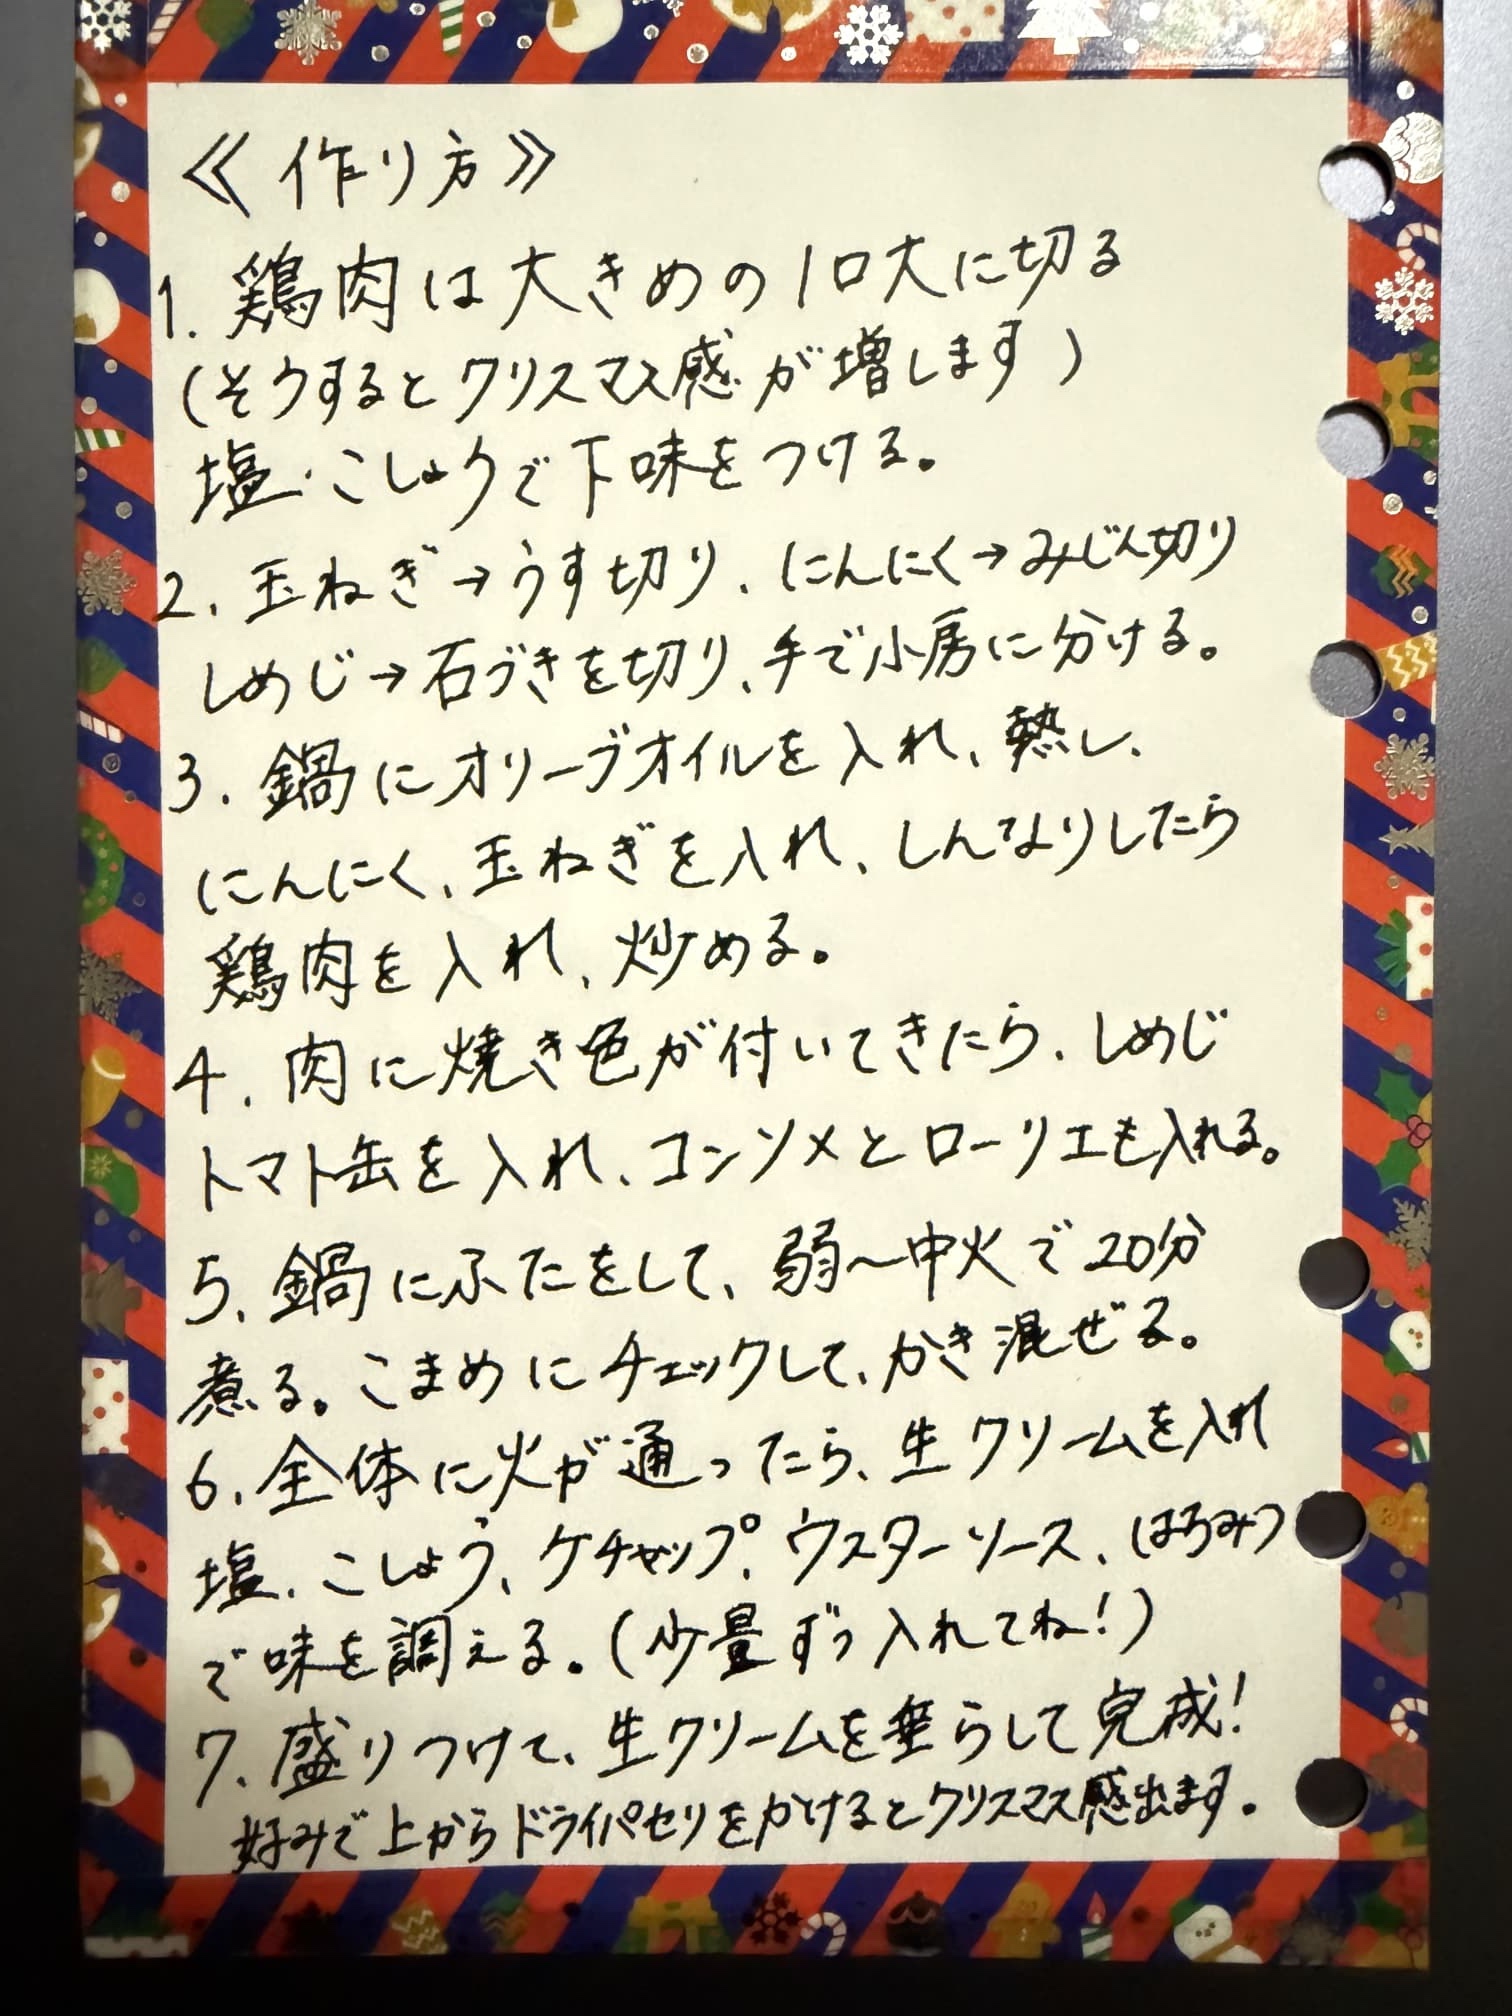 ≪作り方≫
1. 鶏肉は大きめの1口大に切る
(そうするとクリスマス感が増します)
塩・こしょうで下味をつける。
2. 玉ねぎ→うす切り、にんにく→みじん切り
しめじ→石づきを切り、手で小房に分ける。
3. 鍋にオリーブオイルを入れ、熱し、
にんにく、玉ねぎを入れ、しんなりしたら
鶏肉を入れ、炒める。
4. 肉に焼き色が付いてきたら、しめじ
トマト缶を入れ、コンソメとローリエも入れる。
5. 鍋にふたをして、弱〜中火で20分
煮る。こまめにチェックして、かき混ぜる。
6. 全体に火が通ったら、生クリームを入れ
塩、こしょう、ケチャップ、ウスターソース、はちみつ
で味を調える。(少量ずつ入れてね!)
7. 盛りつけて、生クリームを垂らして完成!
好みで上からドライパセリをかけるとクリスマス感出ます。